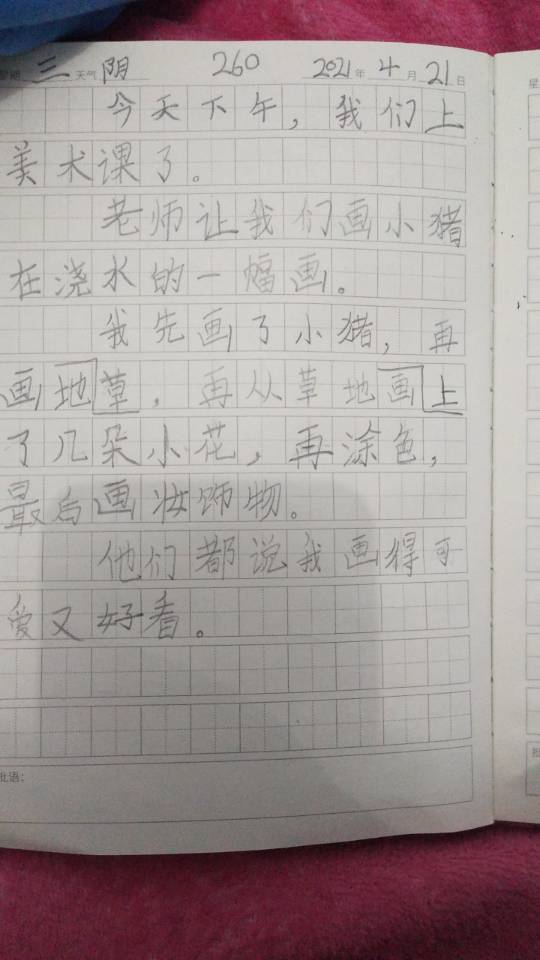 星期三 天气阴 260 2021年4月21日
今天下午，我们上
美术课了。
老师让我们画小猪
在浇水的一幅画。
我先画了小猪，再
画地草，再从草地画上
了几朵小花，再涂色，
最后画妆饰物。
他们都说我画得可
爱又好看。
批语：